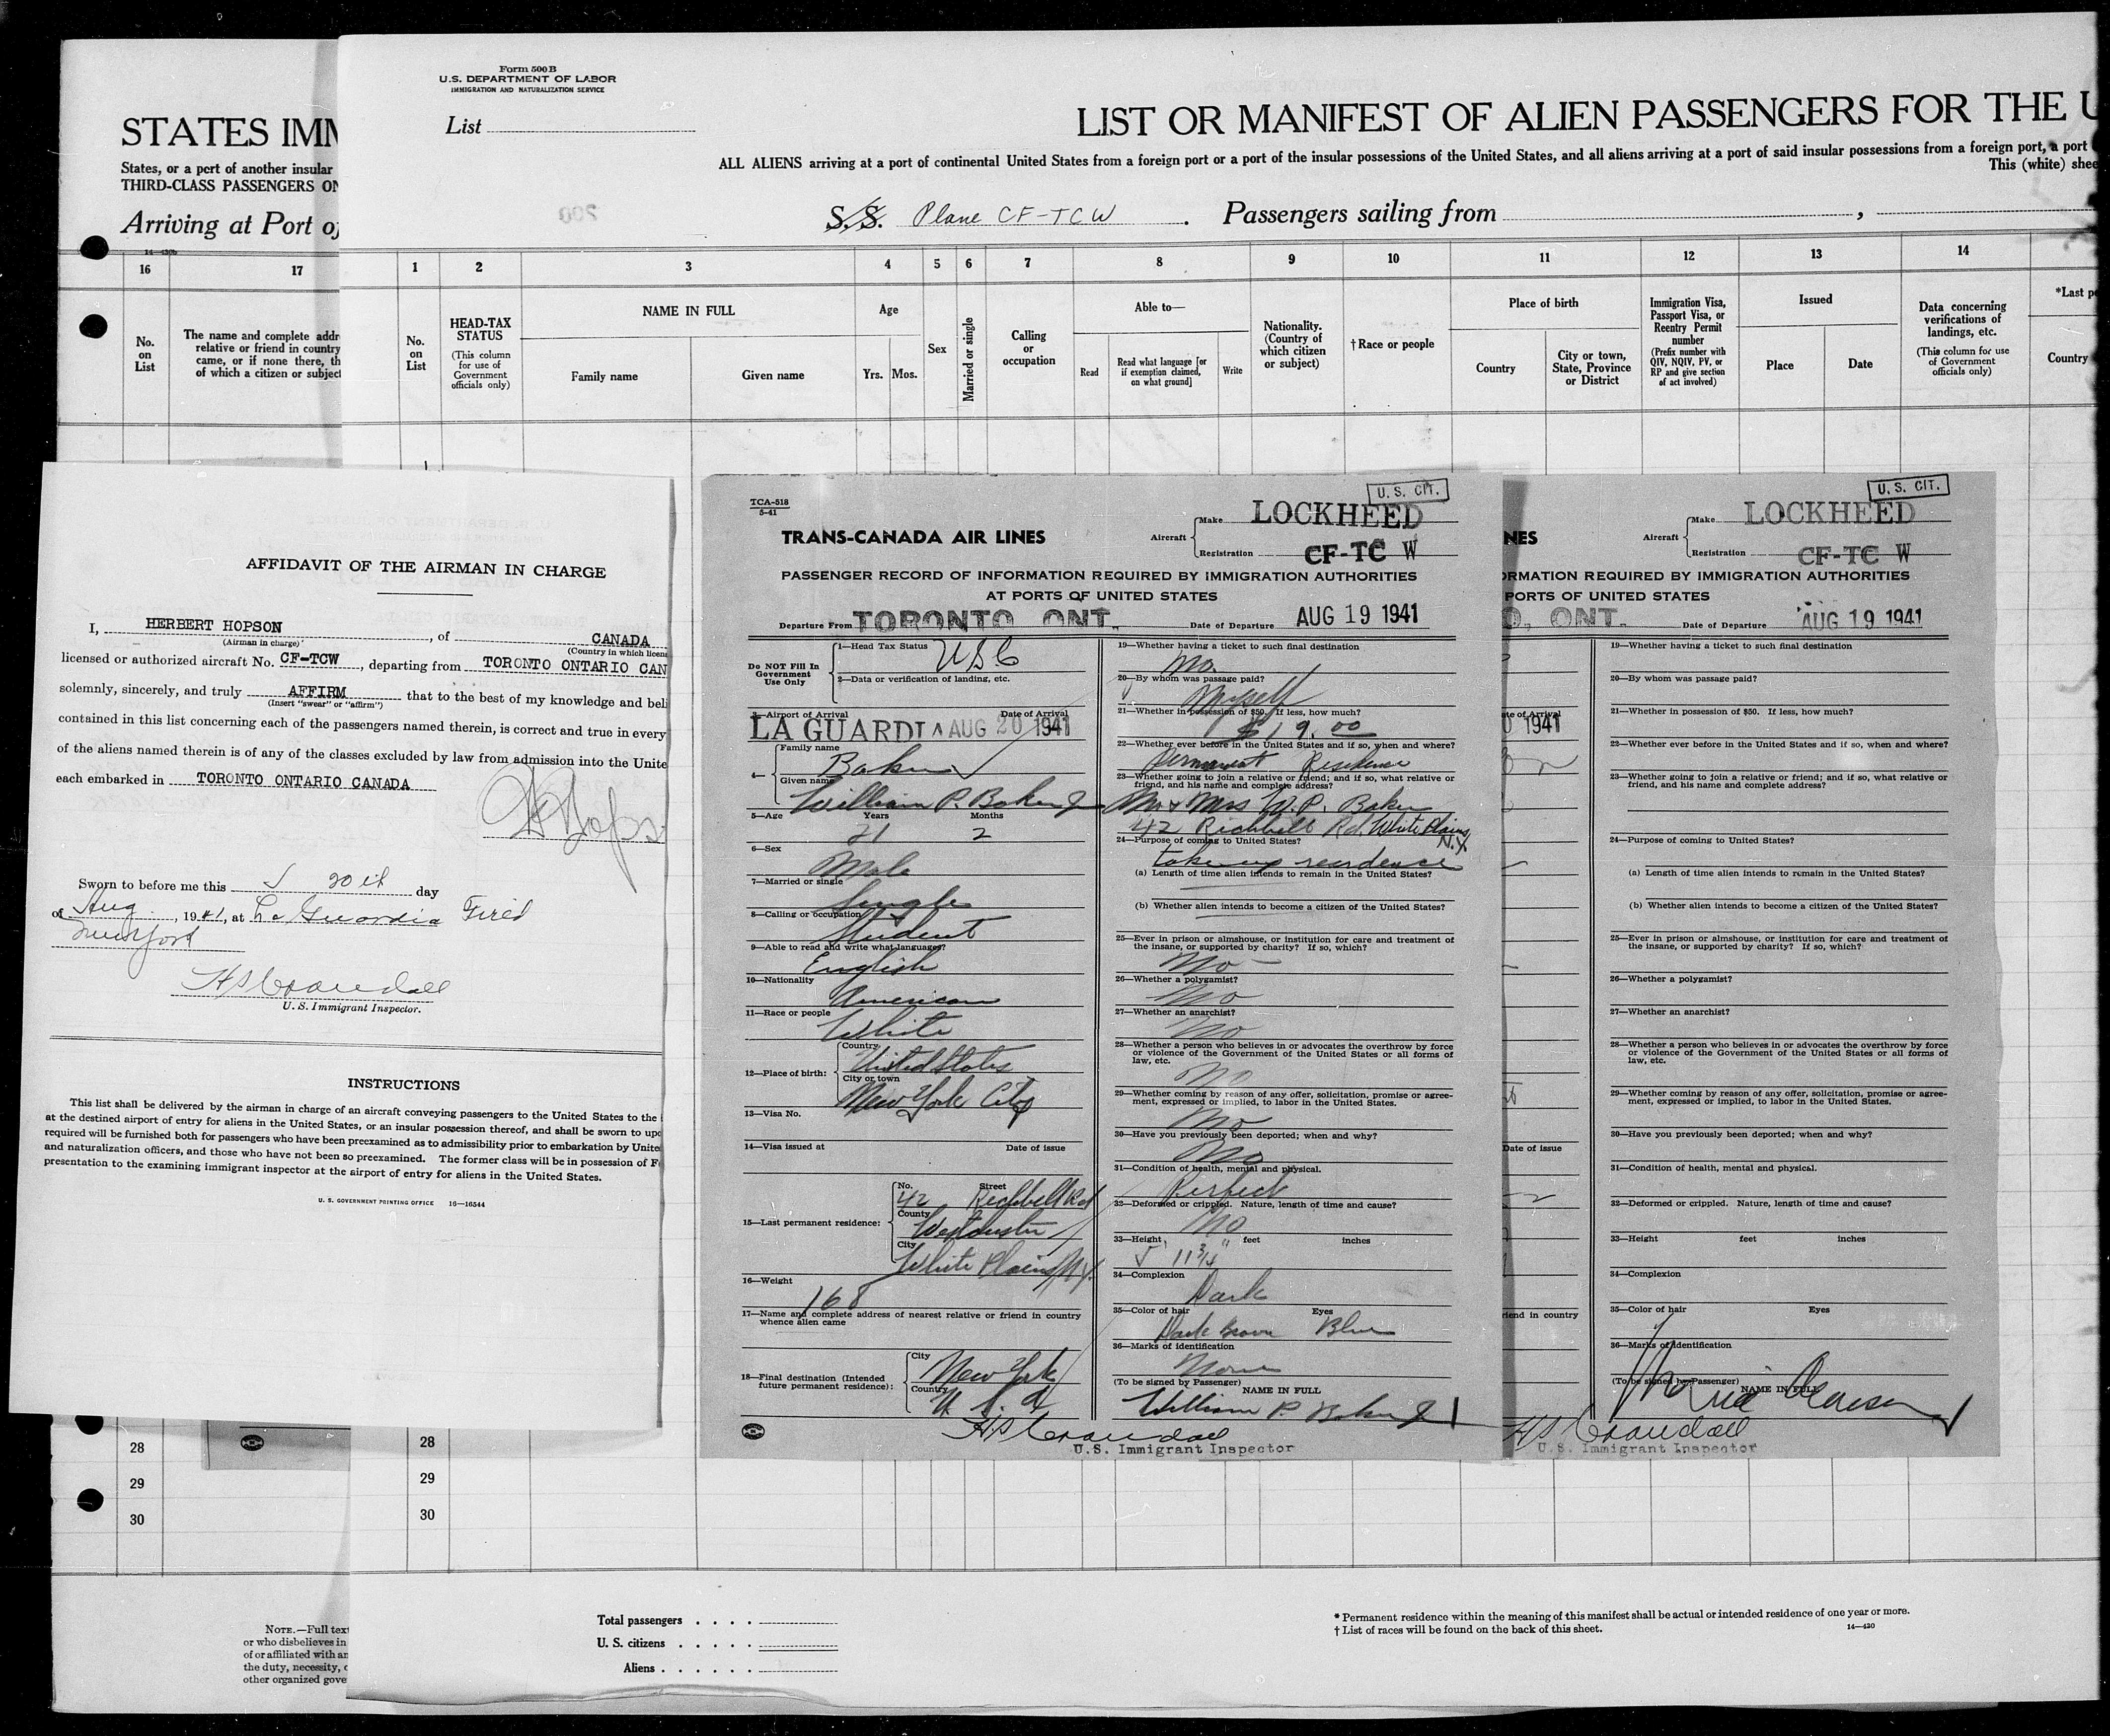 STATES IMM
States, or a port of another insular
THIRD-CLASS PASSENGERS ON
Arriving at Port of
16
17
No.
on
List
The name and complete addr
relative or friend in country
came, or if none there, th
of which a citizen or subject
Form 500 B
U.S. DEPARTMENT OF LABOR
IMMIGRATION AND NATURALIZATION SERVICE
List
LIST OR MANIFEST OF ALIEN PASSENGERS FOR THE U
ALL ALIENS arriving at a port of continental United States from a foreign port or a port of the insular possessions of the United States, and all aliens arriving at a port of said insular possessions from a foreign port, a port
This (white) shee
S.S. Plane CF-TCW . Passengers sailing from ,
1 2 3 4 5 6 7 8 9 10 11 12 13 14
No.
on
List
HEAD-TAX
STATUS
(This column
for use of
Government
officials only)
NAME IN FULL
Family name
Given name
Age
Yrs. Mos.
Sex
Married or single
Calling
or
occupation
Able to—
Read
Read what language [or
if exemption claimed,
on what ground]
Write
Nationality.
(Country of
which citizen
or subject)
†Race or people
Place of birth
Country
City or town,
State, Province
or District
Immigration Visa,
Passport Visa, or
Reentry Permit
number
(Prefix number with
QIV, NQIV, PV, or
RP and give section
of act involved)
Issued
Place
Date
Data concerning
verifications of
landings, etc.
(This column for use
of Government
officials only)
*Last pe
Country
AFFIDAVIT OF THE AIRMAN IN CHARGE
I, HERBERT HOPSON , of CANADA
(Airman in charge)
(Country in which licen
licensed or authorized aircraft No. CF-TCW , departing from TORONTO ONTARIO CAN
solemnly, sincerely, and truly AFFIRM that to the best of my knowledge and beli
(Insert "swear" or "affirm")
contained in this list concerning each of the passengers named therein, is correct and true in every
of the aliens named therein is of any of the classes excluded by law from admission into the Unite
each embarked in TORONTO ONTARIO CANADA
Sworn to before me this 20th day
of Aug , 1941, at La Guardia Field
New York
HS Crandall
U. S. Immigrant Inspector.
INSTRUCTIONS
This list shall be delivered by the airman in charge of an aircraft conveying passengers to the United States to the
at the destined airport of entry for aliens in the United States, or an insular possession thereof, and shall be sworn to upo
required will be furnished both for passengers who have been preexamined as to admissibility prior to embarkation by Unite
and naturalization officers, and those who have not been so preexamined. The former class will be in possession of F
presentation to the examining immigrant inspector at the airport of entry for aliens in the United States.
U. S. GOVERNMENT PRINTING OFFICE 16—16544
TCA-518
5-41
U. S. CIT.
TRANS-CANADA AIR LINES
Aircraft
Make LOCKHEED
Registration CF-TC W
PASSENGER RECORD OF INFORMATION REQUIRED BY IMMIGRATION AUTHORITIES
AT PORTS OF UNITED STATES
Departure From TORONTO ONT. Date of Departure AUG 19 1941
Do NOT Fill In
Government
Use Only
1—Head Tax Status USC
2—Data or verification of landing, etc.
3—Airport of Arrival Date of Arrival
LA GUARDIA AUG 20 1941
4—
Family name
Baker
Given name
William P. Baker Jr
5—Age Years Months
21 2
6—Sex
Male
7—Married or single
Single
8—Calling or occupation
Student
9—Able to read and write what languages?
English
10—Nationality
American
11—Race or people
White
12—Place of birth:
Country
United States
City or town
New York City
13—Visa No.
14—Visa issued at Date of issue
15—Last permanent residence:
No. Street
42 Richbell Rd
County
Westchester
City
White Plains N.Y.
16—Weight
168
17—Name and complete address of nearest relative or friend in country
whence alien came
18—Final destination (Intended
future permanent residence):
City
New York
Country
U. S. A
19—Whether having a ticket to such final destination
No.
20—By whom was passage paid?
Myself
21—Whether in possession of $50. If less, how much?
$19.00
22—Whether ever before in the United States and if so, when and where?
Permanent Residence
23—Whether going to join a relative or friend; and if so, what relative or
friend, and his name and complete address?
Mr & Mrs W. P. Baker
42 Richbell Rd. White Plains
N.Y.
24—Purpose of coming to United States?
take up residence
(a) Length of time alien intends to remain in the United States?
(b) Whether alien intends to become a citizen of the United States?
25—Ever in prison or almshouse, or institution for care and treatment of
the insane, or supported by charity? If so, which?
No
26—Whether a polygamist?
No
27—Whether an anarchist?
No
28—Whether a person who believes in or advocates the overthrow by force
or violence of the Government of the United States or all forms of
law, etc.
No
29—Whether coming by reason of any offer, solicitation, promise or agree-
ment, expressed or implied, to labor in the United States.
No
30—Have you previously been deported; when and why?
No
31—Condition of health, mental and physical.
Perfect
32—Deformed or crippled. Nature, length of time and cause?
No
33—Height feet inches
5' 11 3/4"
34—Complexion
Dark
35—Color of hair Eyes
Dark Brown Blue
36—Marks of identification
None
(To be signed by Passenger)
NAME IN FULL
William P. Baker Jr
HS Crandall
U.S. Immigrant Inspector
U. S. CIT.
NES
Aircraft
Make LOCKHEED
Registration CF-TC W
ORMATION REQUIRED BY IMMIGRATION AUTHORITIES
PORTS OF UNITED STATES
O, ONT. Date of Departure AUG 19 1941
te of Arrival
0 1941
Date of issue
riend in country
19—Whether having a ticket to such final destination
20—By whom was passage paid?
21—Whether in possession of $50. If less, how much?
22—Whether ever before in the United States and if so, when and where?
23—Whether going to join a relative or friend; and if so, what relative or
friend, and his name and complete address?
24—Purpose of coming to United States?
(a) Length of time alien intends to remain in the United States?
(b) Whether alien intends to become a citizen of the United States?
25—Ever in prison or almshouse, or institution for care and treatment of
the insane, or supported by charity? If so, which?
26—Whether a polygamist?
27—Whether an anarchist?
28—Whether a person who believes in or advocates the overthrow by force
or violence of the Government of the United States or all forms of
law, etc.
29—Whether coming by reason of any offer, solicitation, promise or agree-
ment, expressed or implied, to labor in the United States.
30—Have you previously been deported; when and why?
31—Condition of health, mental and physical.
32—Deformed or crippled. Nature, length of time and cause?
33—Height feet inches
34—Complexion
35—Color of hair Eyes
36—Marks of identification
(To be signed by Passenger)
NAME IN FULL
HS Crandall
U.S. Immigrant Inspector
28 28
29 29
30 30
NOTE.—Full text
or who disbelieves in
of or affiliated with an
the duty, necessity, o
other organized gove
Total passengers . . . .
U. S. citizens . . . . .
Aliens . . . . . .
* Permanent residence within the meaning of this manifest shall be actual or intended residence of one year or more.
† List of races will be found on the back of this sheet.
14—430